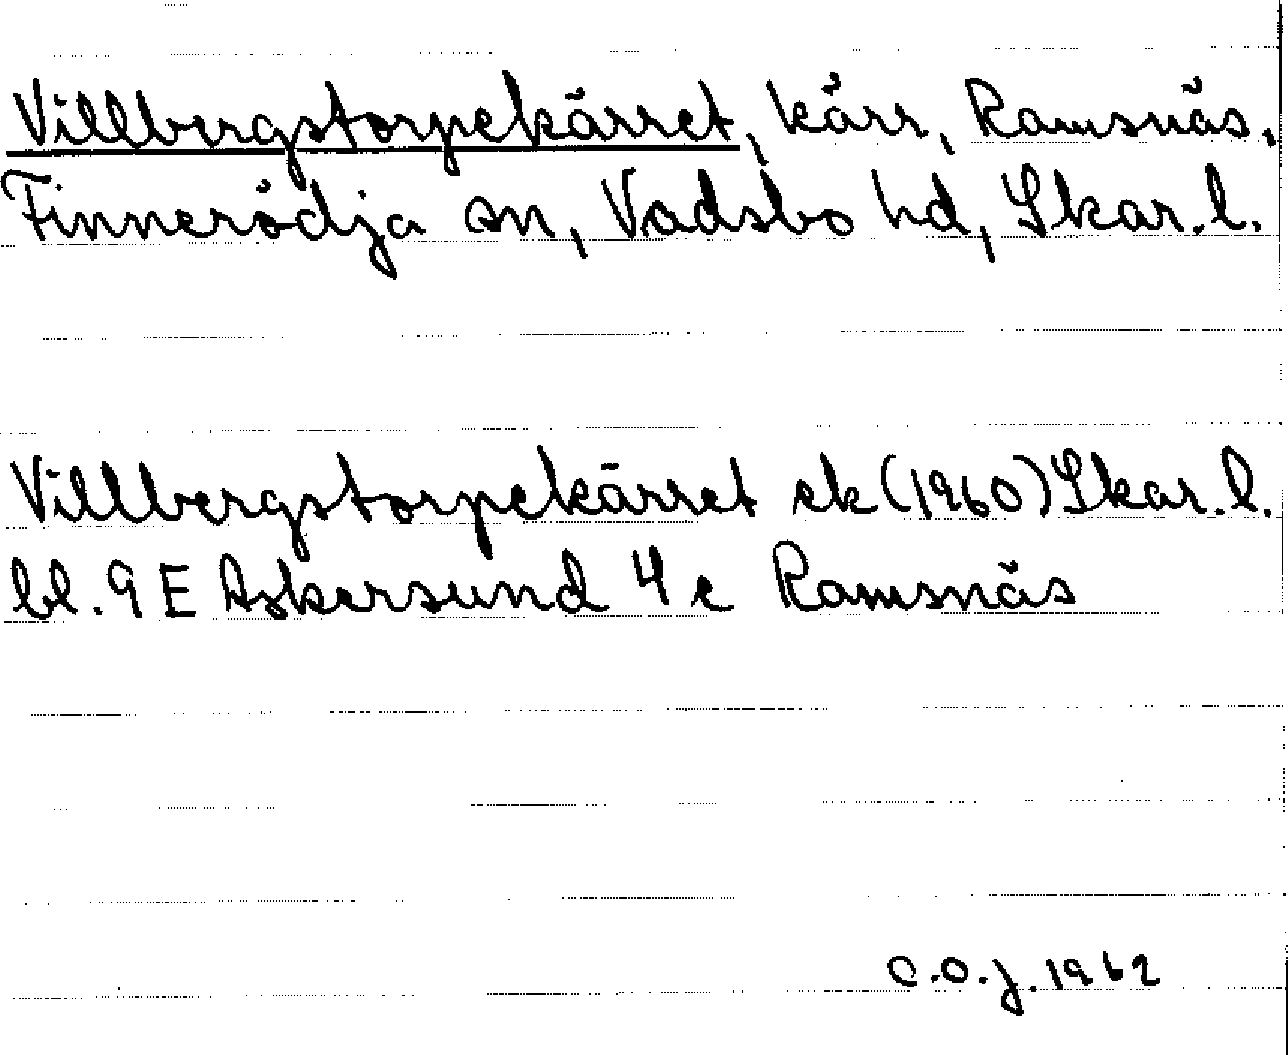 Villbergstorpekärret, kärr, Ramsnäs,
Finnerödja sn, Vadsbo hd, Skar. l.
Villbergstorpekärret ek (1960) Skar. l.
bl. 9 E Askersund 4 c Ramsnäs
C.O.J. 1962